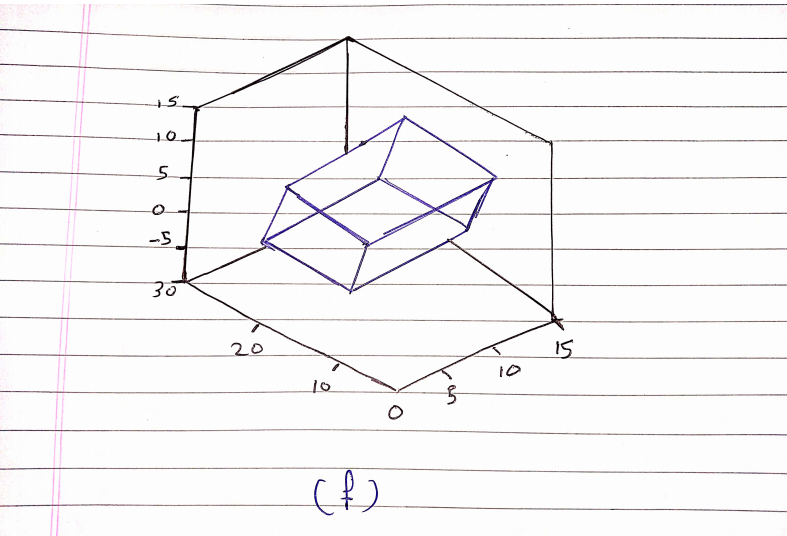 15
10
5
0
-5
30
20
10
0
5
10
15
(f)